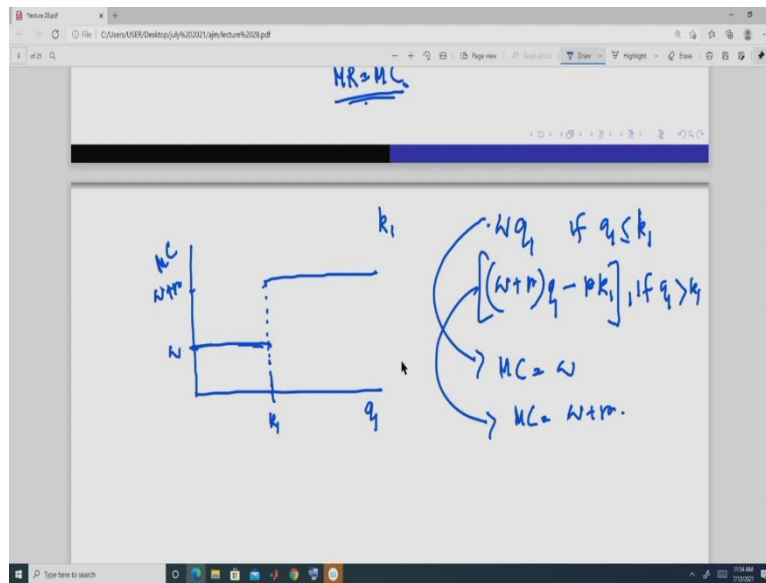 *lecture 28.pdf
File | C:/Users/USER/Desktop/july%202021/ajm/lecture%2028.pdf
9 of 25
Page view | Read aloud | Draw Highlight Erase
MR = MC
k₁
wq₁ if q₁ ≤ k₁
[(w+r)q₁ - rk₁], if q₁ > k₁
MC = w
MC = w+r.
MC
w+r
w
k₁ q₁
Type here to search
11:54 AM
7/12/2021